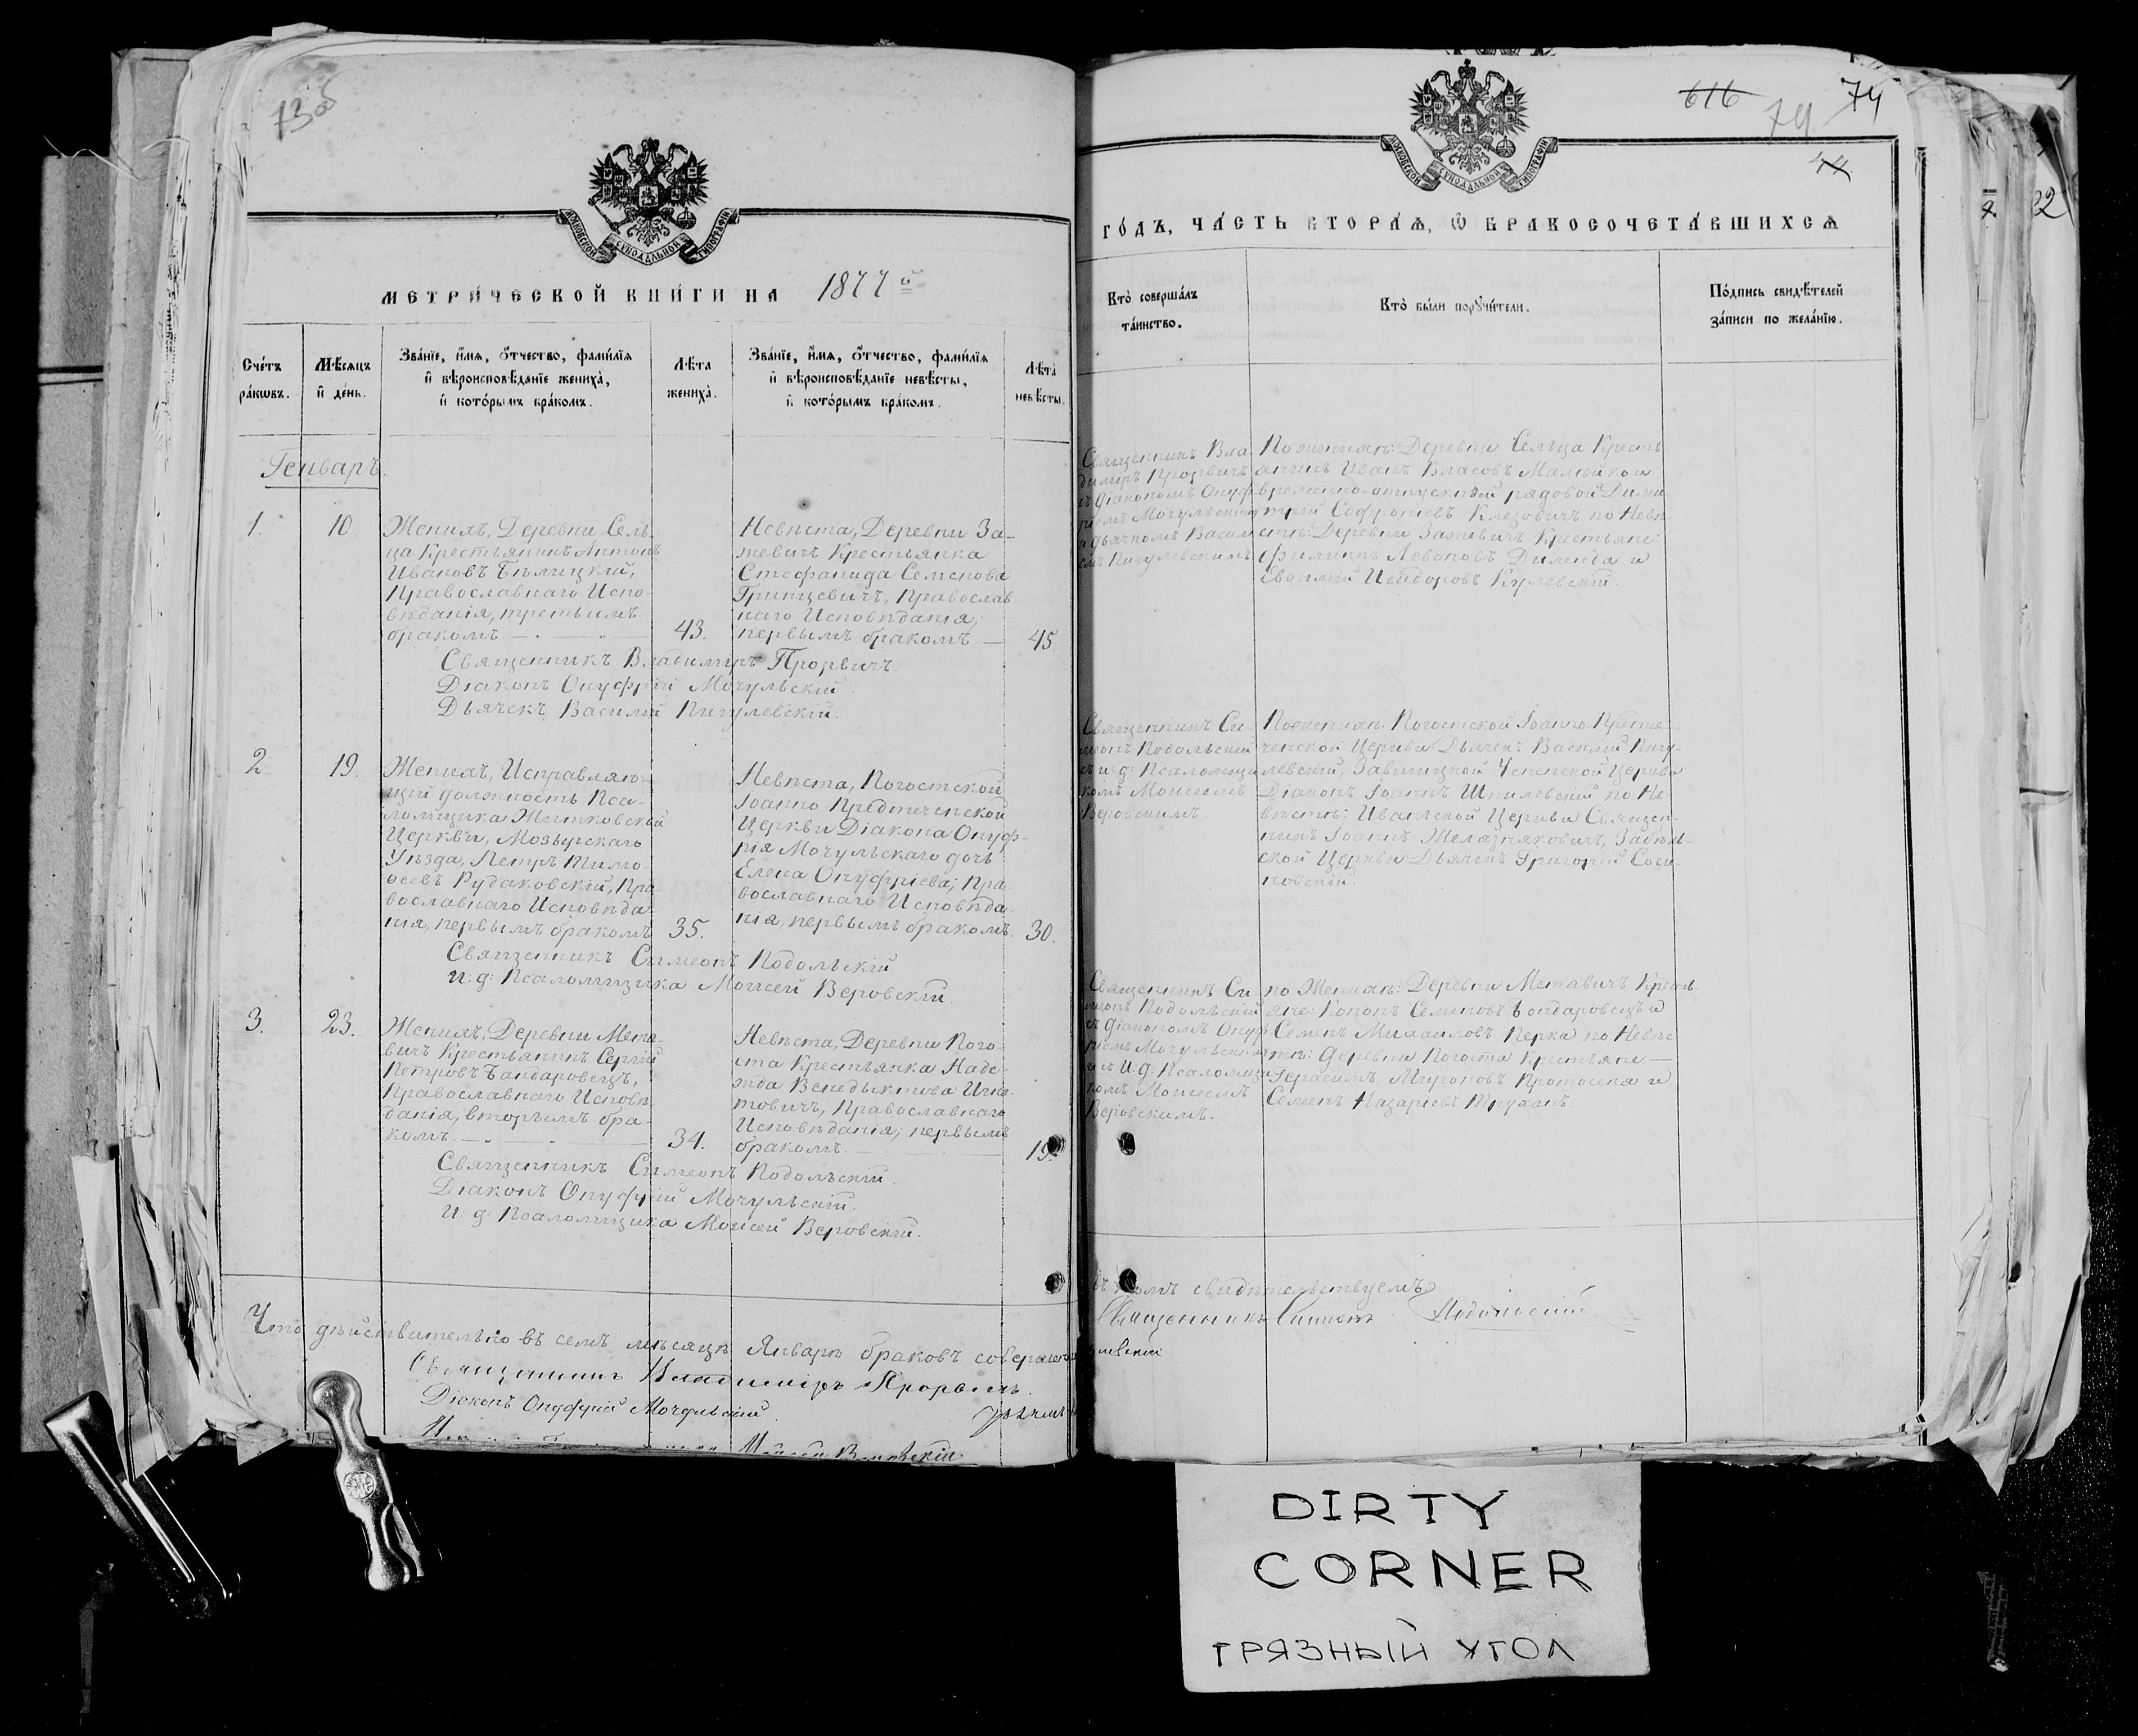 73об
МОСКОВСКОЙ СѴНОДАЛЬНОЙ ТИПОГРАФІИ
МЕТРИ́ЧЕСКОЙ КНИ́ГИ НА 1877й
Сче́тъ
ра́кѡвъ.
Мѣ́сяцъ
и де́нь.
Зва́ніе, и́мя, ѻ́тчество, фами́лія
и вѣроисповѣ́даніе жениха̀,
и кото́рымъ бра́комъ.
Лѣ́та
жениха̀.
Зва́ніе, и́мя, ѻ́тчество, фами́лія
и вѣроисповѣ́даніе невѣ́сты,
и кото́рымъ бра́комъ.
Лѣ́та
невѣ́сты.
Генварь.
1.
10.
Женихъ, Деревни Сель-
ца Крестьянинъ Антонъ
Ивановъ Бѣлицкій,
Православнаго Испо-
вѣданія, третьимъ
бракомъ
43.
Невѣста, Деревни За-
жевичъ Крестьянка
Стефанида Семенова
Грицевичъ, Православ-
наго Исповѣданія,
первымъ бракомъ
45.
Священникъ Владиміръ Прорвичъ.
Діаконъ Онуфрій Мочульскій.
Дьячекъ Василій Пигулевскій.
2.
19.
Женихъ, Исправляю-
щій должность Пса-
ломщика Житковской
Церкви, Мозырскаго
Уѣзда, Петръ Тимо-
ѳеевъ Рудаковскій, Пра-
вославнаго Исповѣда-
нія, первымъ бракомъ
35.
Невѣста, Погостской
Іоанно Предтеченской
Церкви Діакона Онуф-
рія Мочульскаго дочь
Елена Онуфріева; Пра-
вославнаго Исповѣда-
нія, первымъ бракомъ.
30.
Священникъ Симеонъ Подольскій
и. д: Псаломщика Моисей Веровскій.
3.
23.
Женихъ, Деревни Мета-
вичъ Крестьянинъ Сергій
Петровъ Бандаровецъ,
Православнаго Исповѣ-
данія, вторымъ бра-
комъ.
34.
Невѣста, Деревни Пого-
ста Крестьянка Наде-
жда Венедиктова Игна-
товичъ, Православнаго
Исповѣданія; первымъ
бракомъ.
19.
Священникъ Симеонъ Подольскій.
Діаконъ Онуфрій Мочульскій.
И: д: Псаломщика Моисей Веровскій.
Что дѣйствительно въ семъ мѣсяцѣ Январѣ браковъ совершен
Священникъ Владиміръ Прорвичъ.
Діаконъ Онуфрій Мочульскій.
616
74
74
44
МОСКОВСКОЙ СѴНОДАЛЬНОЙ ТИПОГРАФІИ
ГО́ДЪ, ЧА́СТЬ ВТОРА́Я, Ѡ БРАКОСОЧЕТА́ВШИХСЯ
Кто̀ соверша́лъ
та́инство.
Кто̀ бы́ли порꙋчи́тели.
По́дпись свидѣ́телей
за́писи по жела́нію.
Священникъ Вла-
диміръ Прорвичъ
съ Діакономъ Онуф-
ріемъ Мочульскимъ
и дьячкомъ Васил-
емъ Пигулевскимъ
По женихѣ: Деревни Сельца Кресть-
янинъ Иванъ Власовъ Малейко и
временно-отпускной рядовой Дими-
трій Софроніевъ Клезовичъ по Невѣ-
стѣ: Деревни Зажевичъ Крестьяне:
Филиппъ Левоновъ Дыленда и
Евфимій Исидоровъ Кулевскій.
Священникъ Си-
меонъ Подольскій
съ и: д: Псаломщи-
комъ Моисеемъ
Веровскимъ.
По женихѣ: Погостской Іоанно-Предте-
ченской Церкви Дьячекъ Василій Пигу-
левскій, Завшицкой Успенской Церкви
Діаконъ Іоаннъ Шпилевскій; по Не-
вѣстѣ: Иванской Церкви Священ-
никъ Іоаннъ Желязняковичъ,
ской Церкви Дьячекъ Григорій Соси-
новскій.
Священникъ Си-
меонъ Подольскій
съ Діакономъ Онуф-
ріемъ Мочульскимъ
и съ И: д: Псаломщи-
комъ Моисеемъ
Веровскимъ.
по Женихѣ: Деревни Метавичъ Кресть-
яне: Кононъ Семеновъ Бондаровецъ и
Семенъ Михаиловъ Перка по Невѣс-
тѣ: Деревни Погоста Крестьяне
Герасимъ Мироновъ Протасеня и
Семенъ Назаріевъ Труханъ
въ томъ свидѣтельствуемъ
Священникъ Симеонъ Подольскій
22
DIRTY
CORNER
ГРЯЗНЫЙ УГОЛ